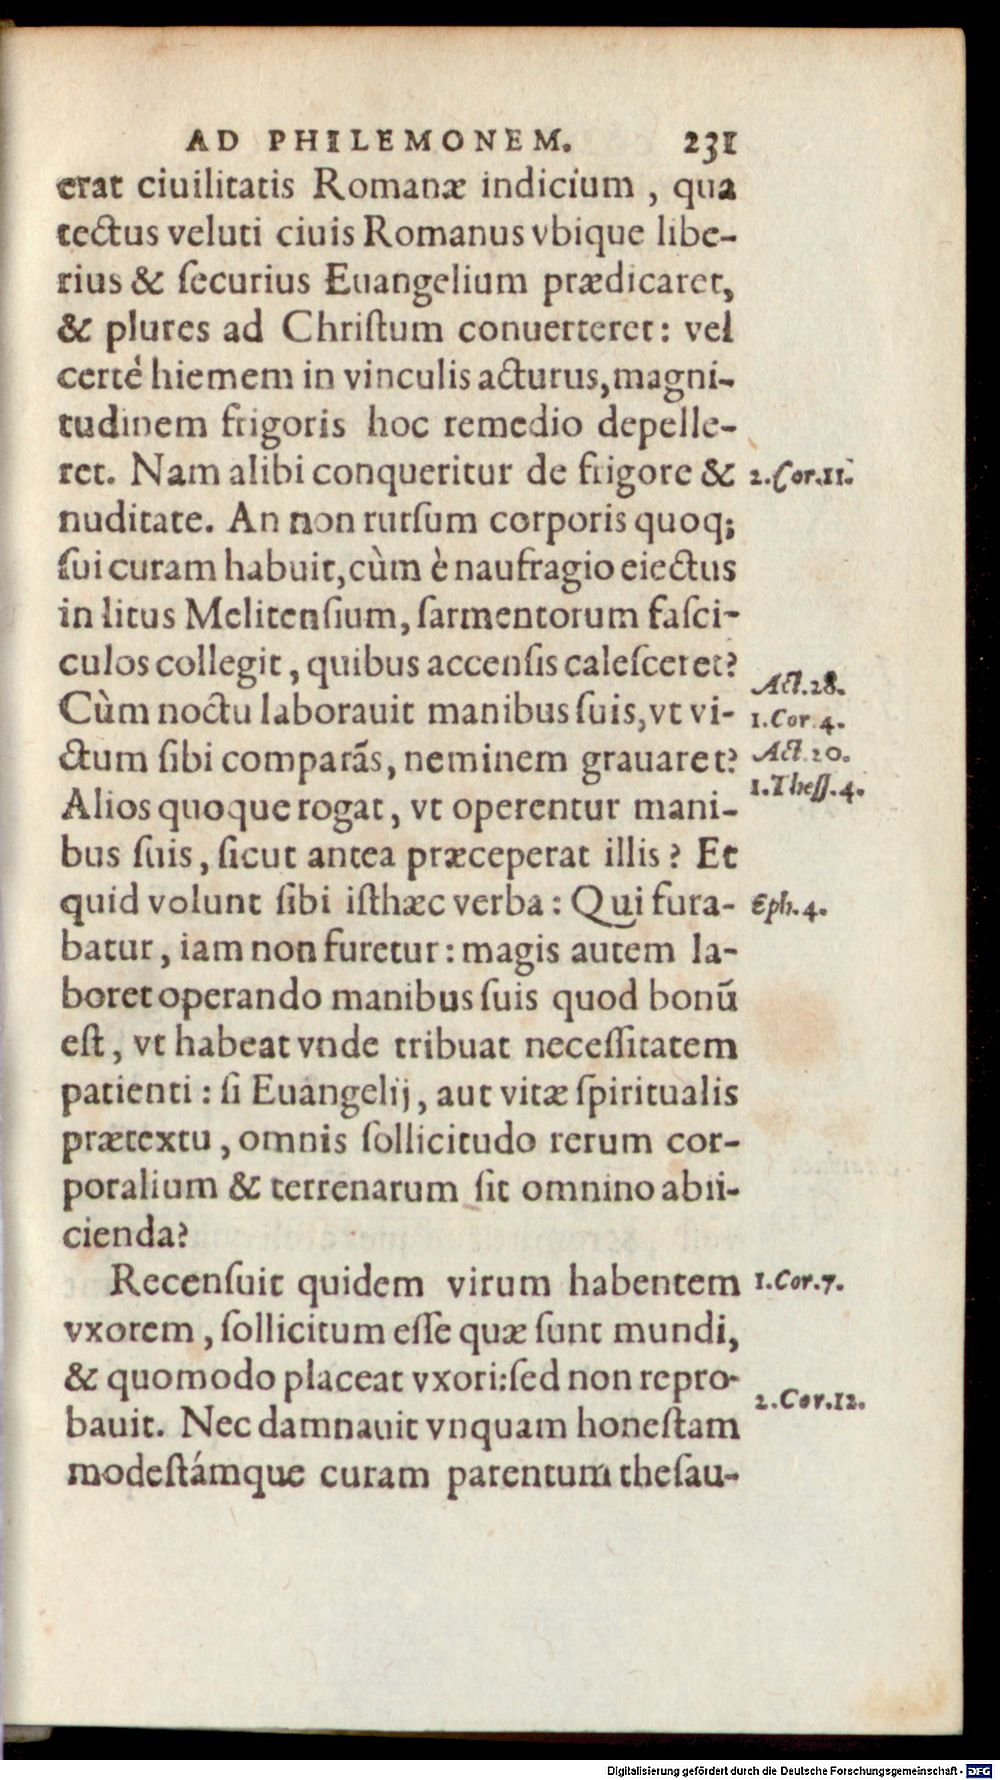 AD PHILEMONEM. 231
erat ciuilitatis Romanæ indicium, qua
tectus veluti ciuis Romanus vbique libe-
rius & ſecurius Euangelium prædicaret,
& plures ad Chriſtum conuerteret: vel
certè hiemem in vinculis acturus, magni-
tudinem frigoris hoc remedio depelle-
ret. Nam alibi conqueritur de frigore & 2.Cor.11.
nuditate. An non rurſum corporis quoq;
ſui curam habuit, cùm è naufragio eiectus
in litus Melitenſium, ſarmentorum faſci-
culos collegit, quibus accenſis caleſceret?
Act.28.
Cùm noctu laborauit manibus ſuis, vt vi- 1.Cor.4.
ctum ſibi comparãs, neminem grauaret? Act.20.
1.Theſſ.4.
Alios quoque rogat, vt operentur mani-
bus ſuis, ſicut antea præceperat illis? Et
quid volunt ſibi iſthæc verba: Qui fura- Eph.4.
batur, iam non furetur: magis autem la-
boret operando manibus ſuis quod bonũ
eſt, vt habeat vnde tribuat neceſſitatem
patienti: ſi Euangelij, aut vitæ ſpiritualis
prætextu, omnis ſollicitudo rerum cor-
poralium & terrenarum ſit omnino abii-
cienda?
Recenſuit quidem virum habentem 1.Cor.7.
vxorem, ſollicitum eſſe quæ ſunt mundi,
& quomodo placeat vxori: ſed non repro-
2.Cor.12.
bauit. Nec damnauit vnquam honeſtam
modeſtámque curam parentum theſau-
Digitalisierung gefördert durch die Deutsche Forschungsgemeinschaft - DFG